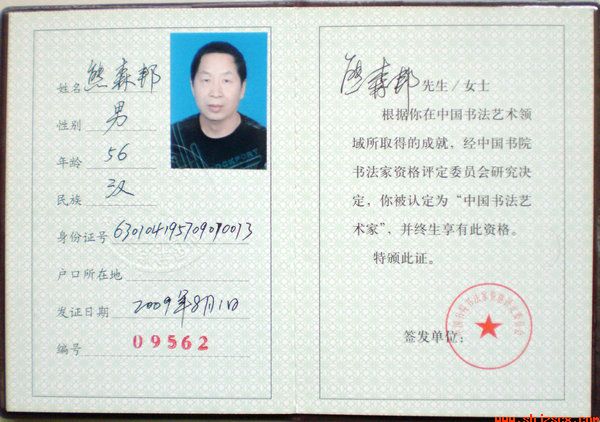 姓名 熊森邦
性别 男
年龄 56
民族 汉
身份证号 630104195709010013
户口所在地
发证日期 2009年8月1日
编号 09562
熊森邦 先生/女士
根据你在中国书法艺术领
域所取得的成就，经中国书院
书法家资格评定委员会研究决
定，你被认定为“中国书法艺
术家”，并终生享有此资格。
特颁此证。
签发单位：
中国书院书法家资格评定委员会